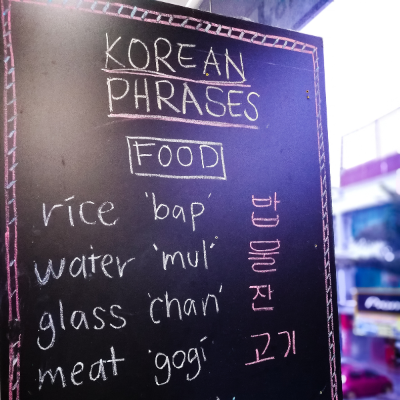 KOREAN
PHRASES
FOOD
rice 'bap' 밥
water 'mul' 물
glass 'chan' 잔
meat 'gogi' 고기